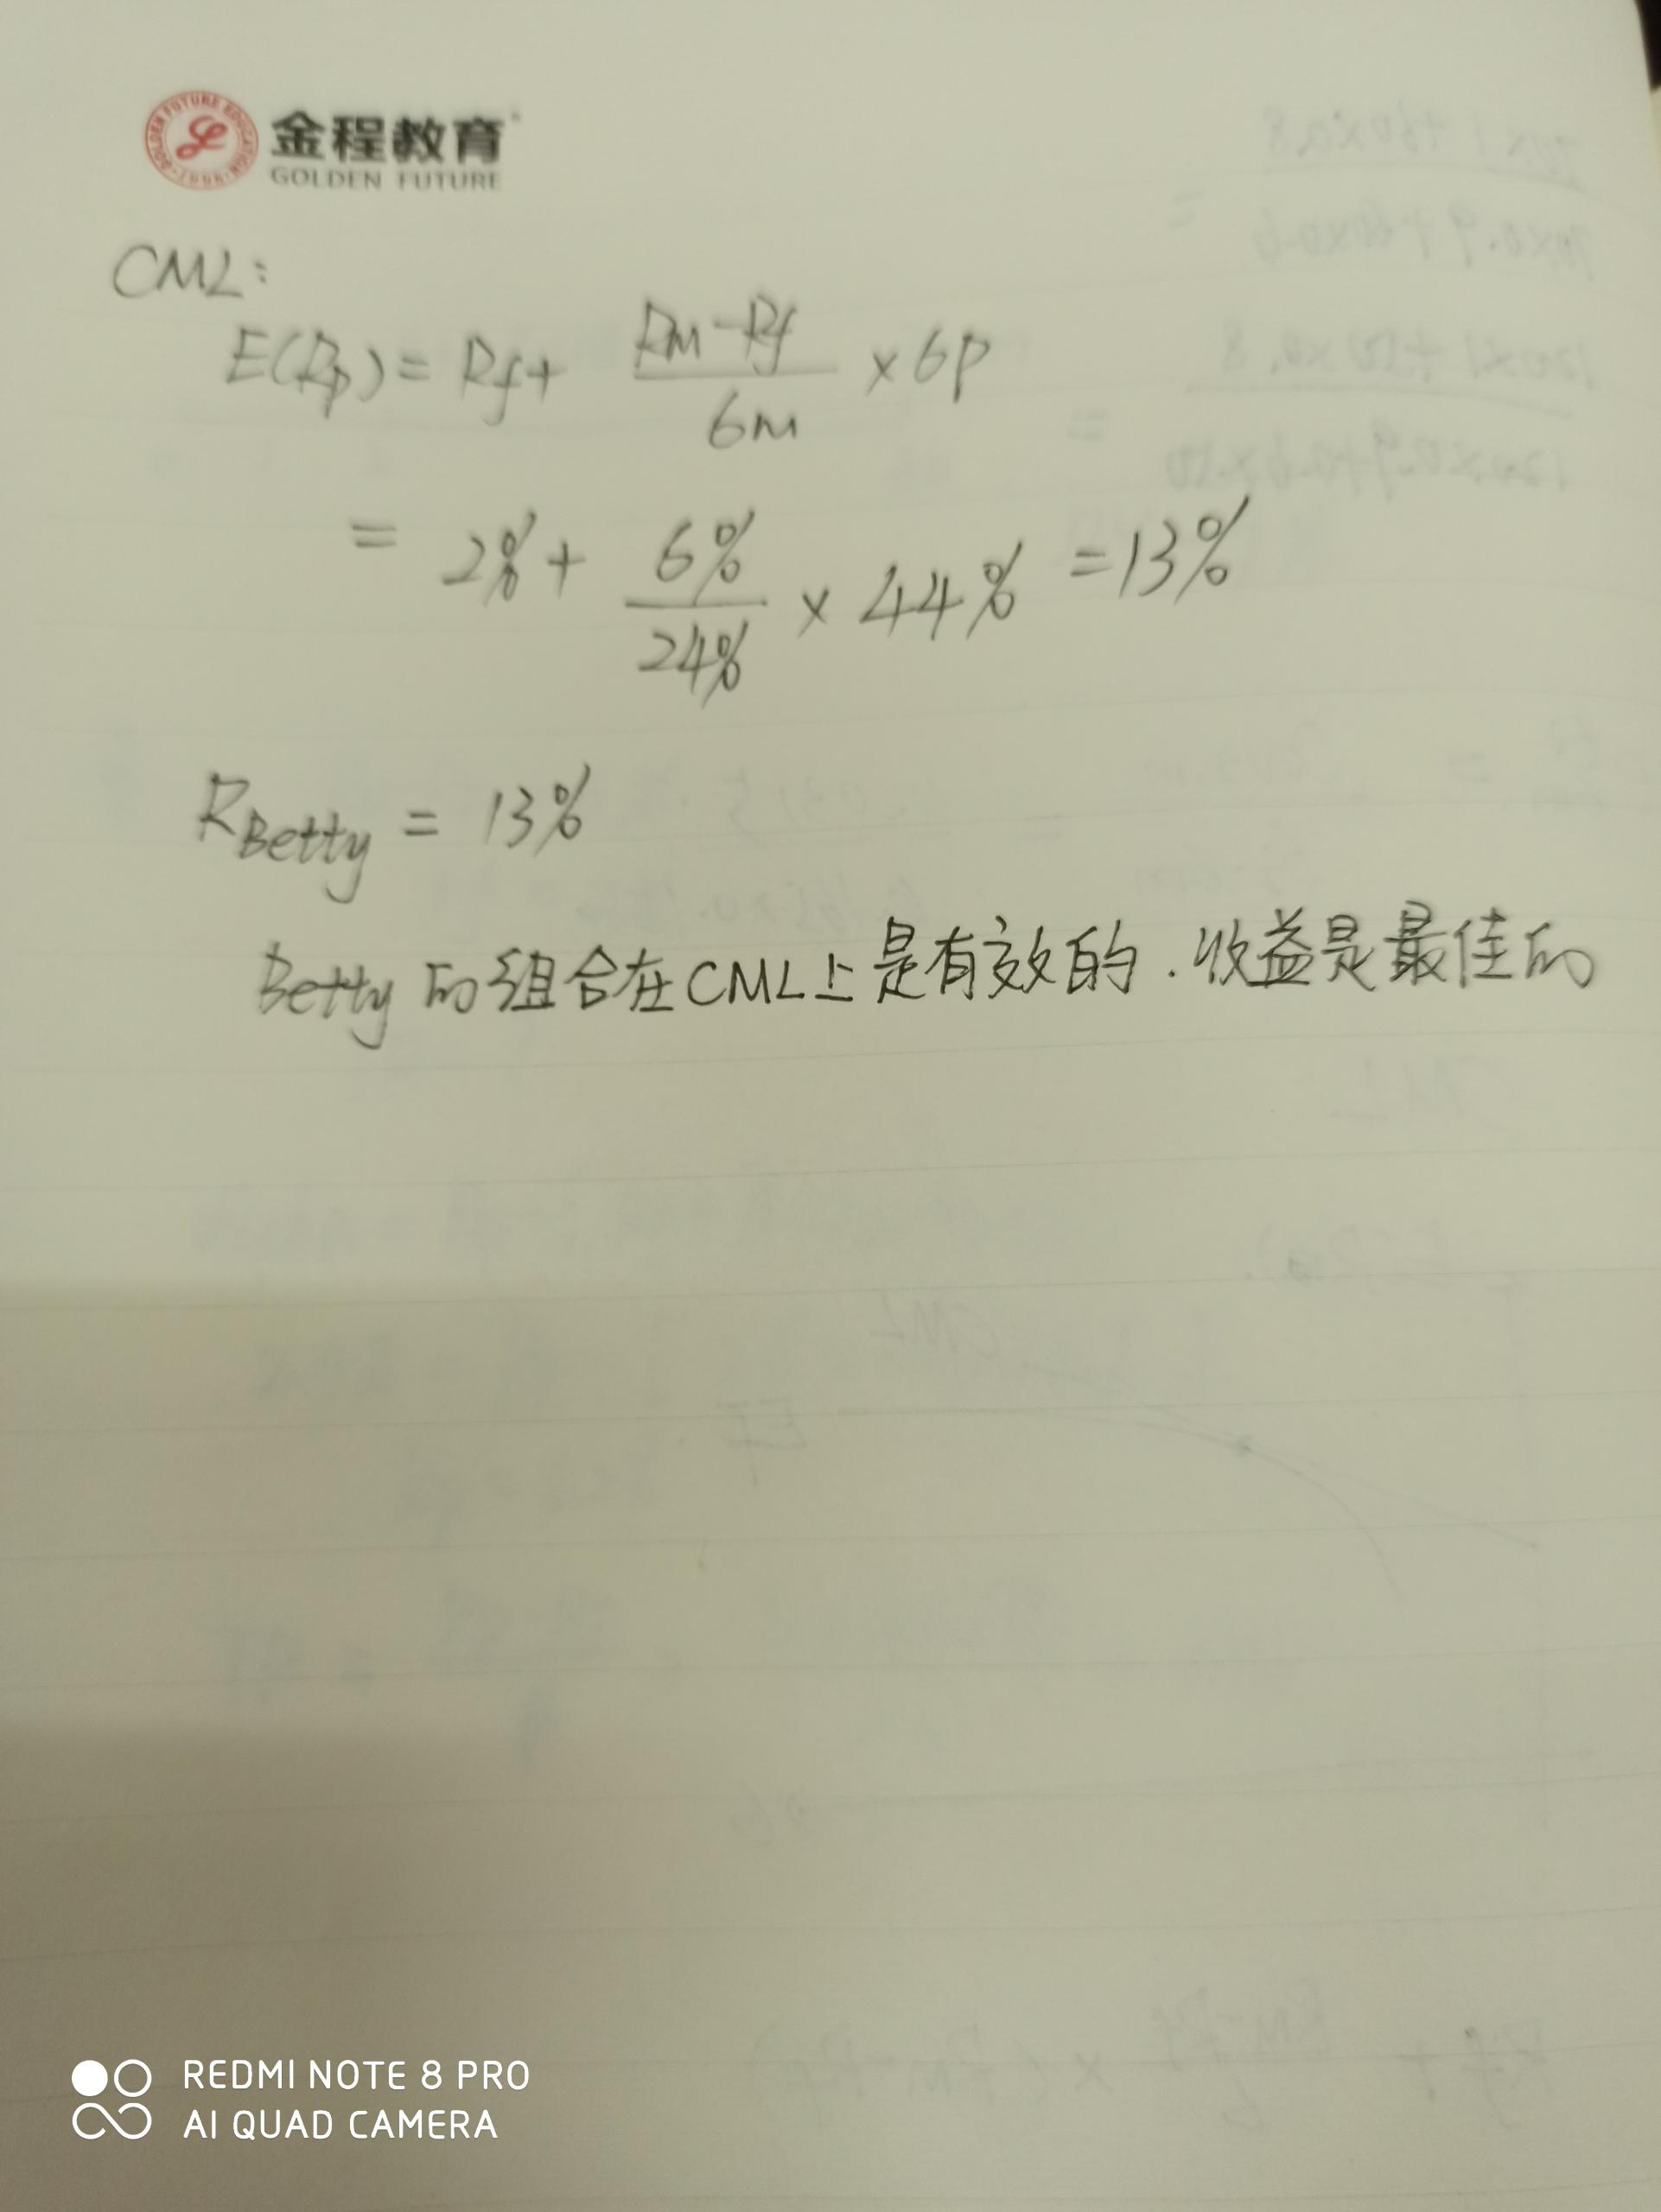 金程教育
GOLDEN FUTURE
CML:
E(Rp) = Rf + (Rm-Rf)/6m × 6p
= 2% + 6%/24% × 44% = 13%
RBetty = 13%
Betty的组合在CML上是有效的.收益是最佳的
REDMI NOTE 8 PRO
AI QUAD CAMERA